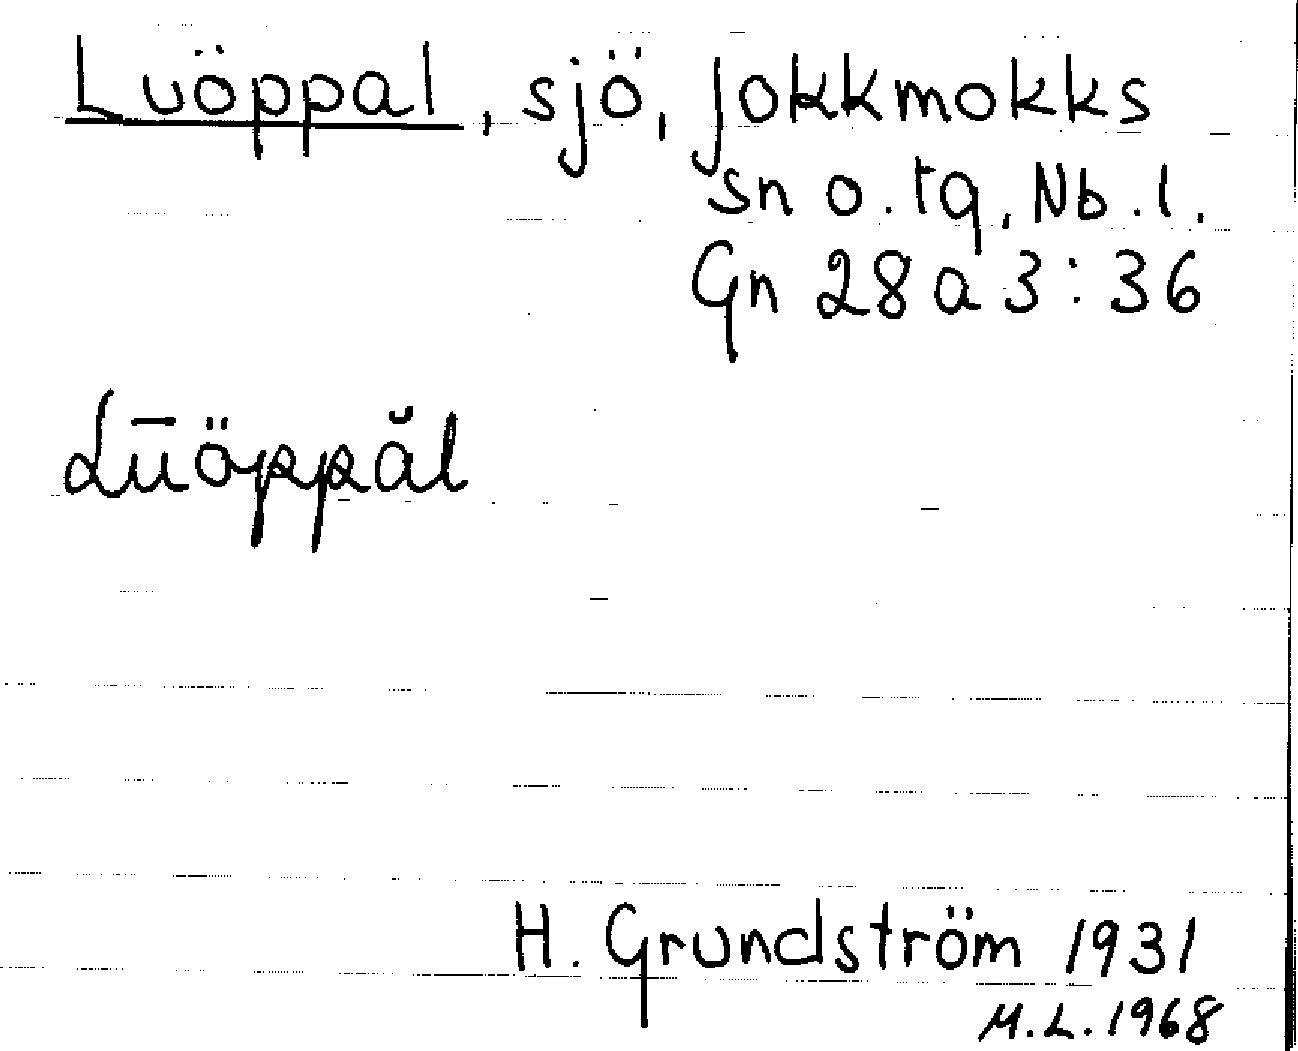 Luöppal, sjö, Jokkmokks
sn o. tg, Nb. l.
Gn 28 a 3:36
Lūöppăl
H. Grundström 1931
M.L. 1968